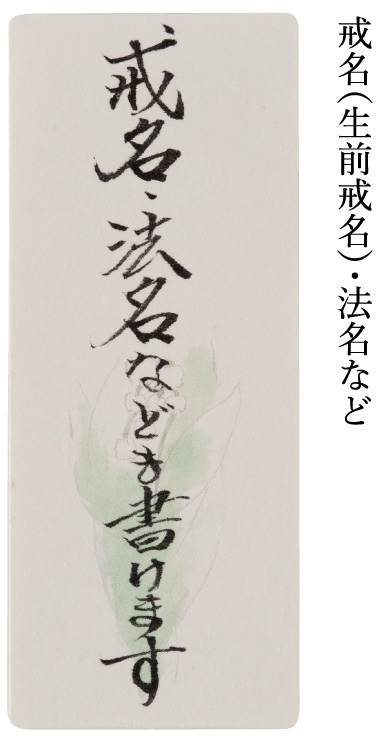 戒名(生前戒名)・法名など
戒名、法名なども書けます